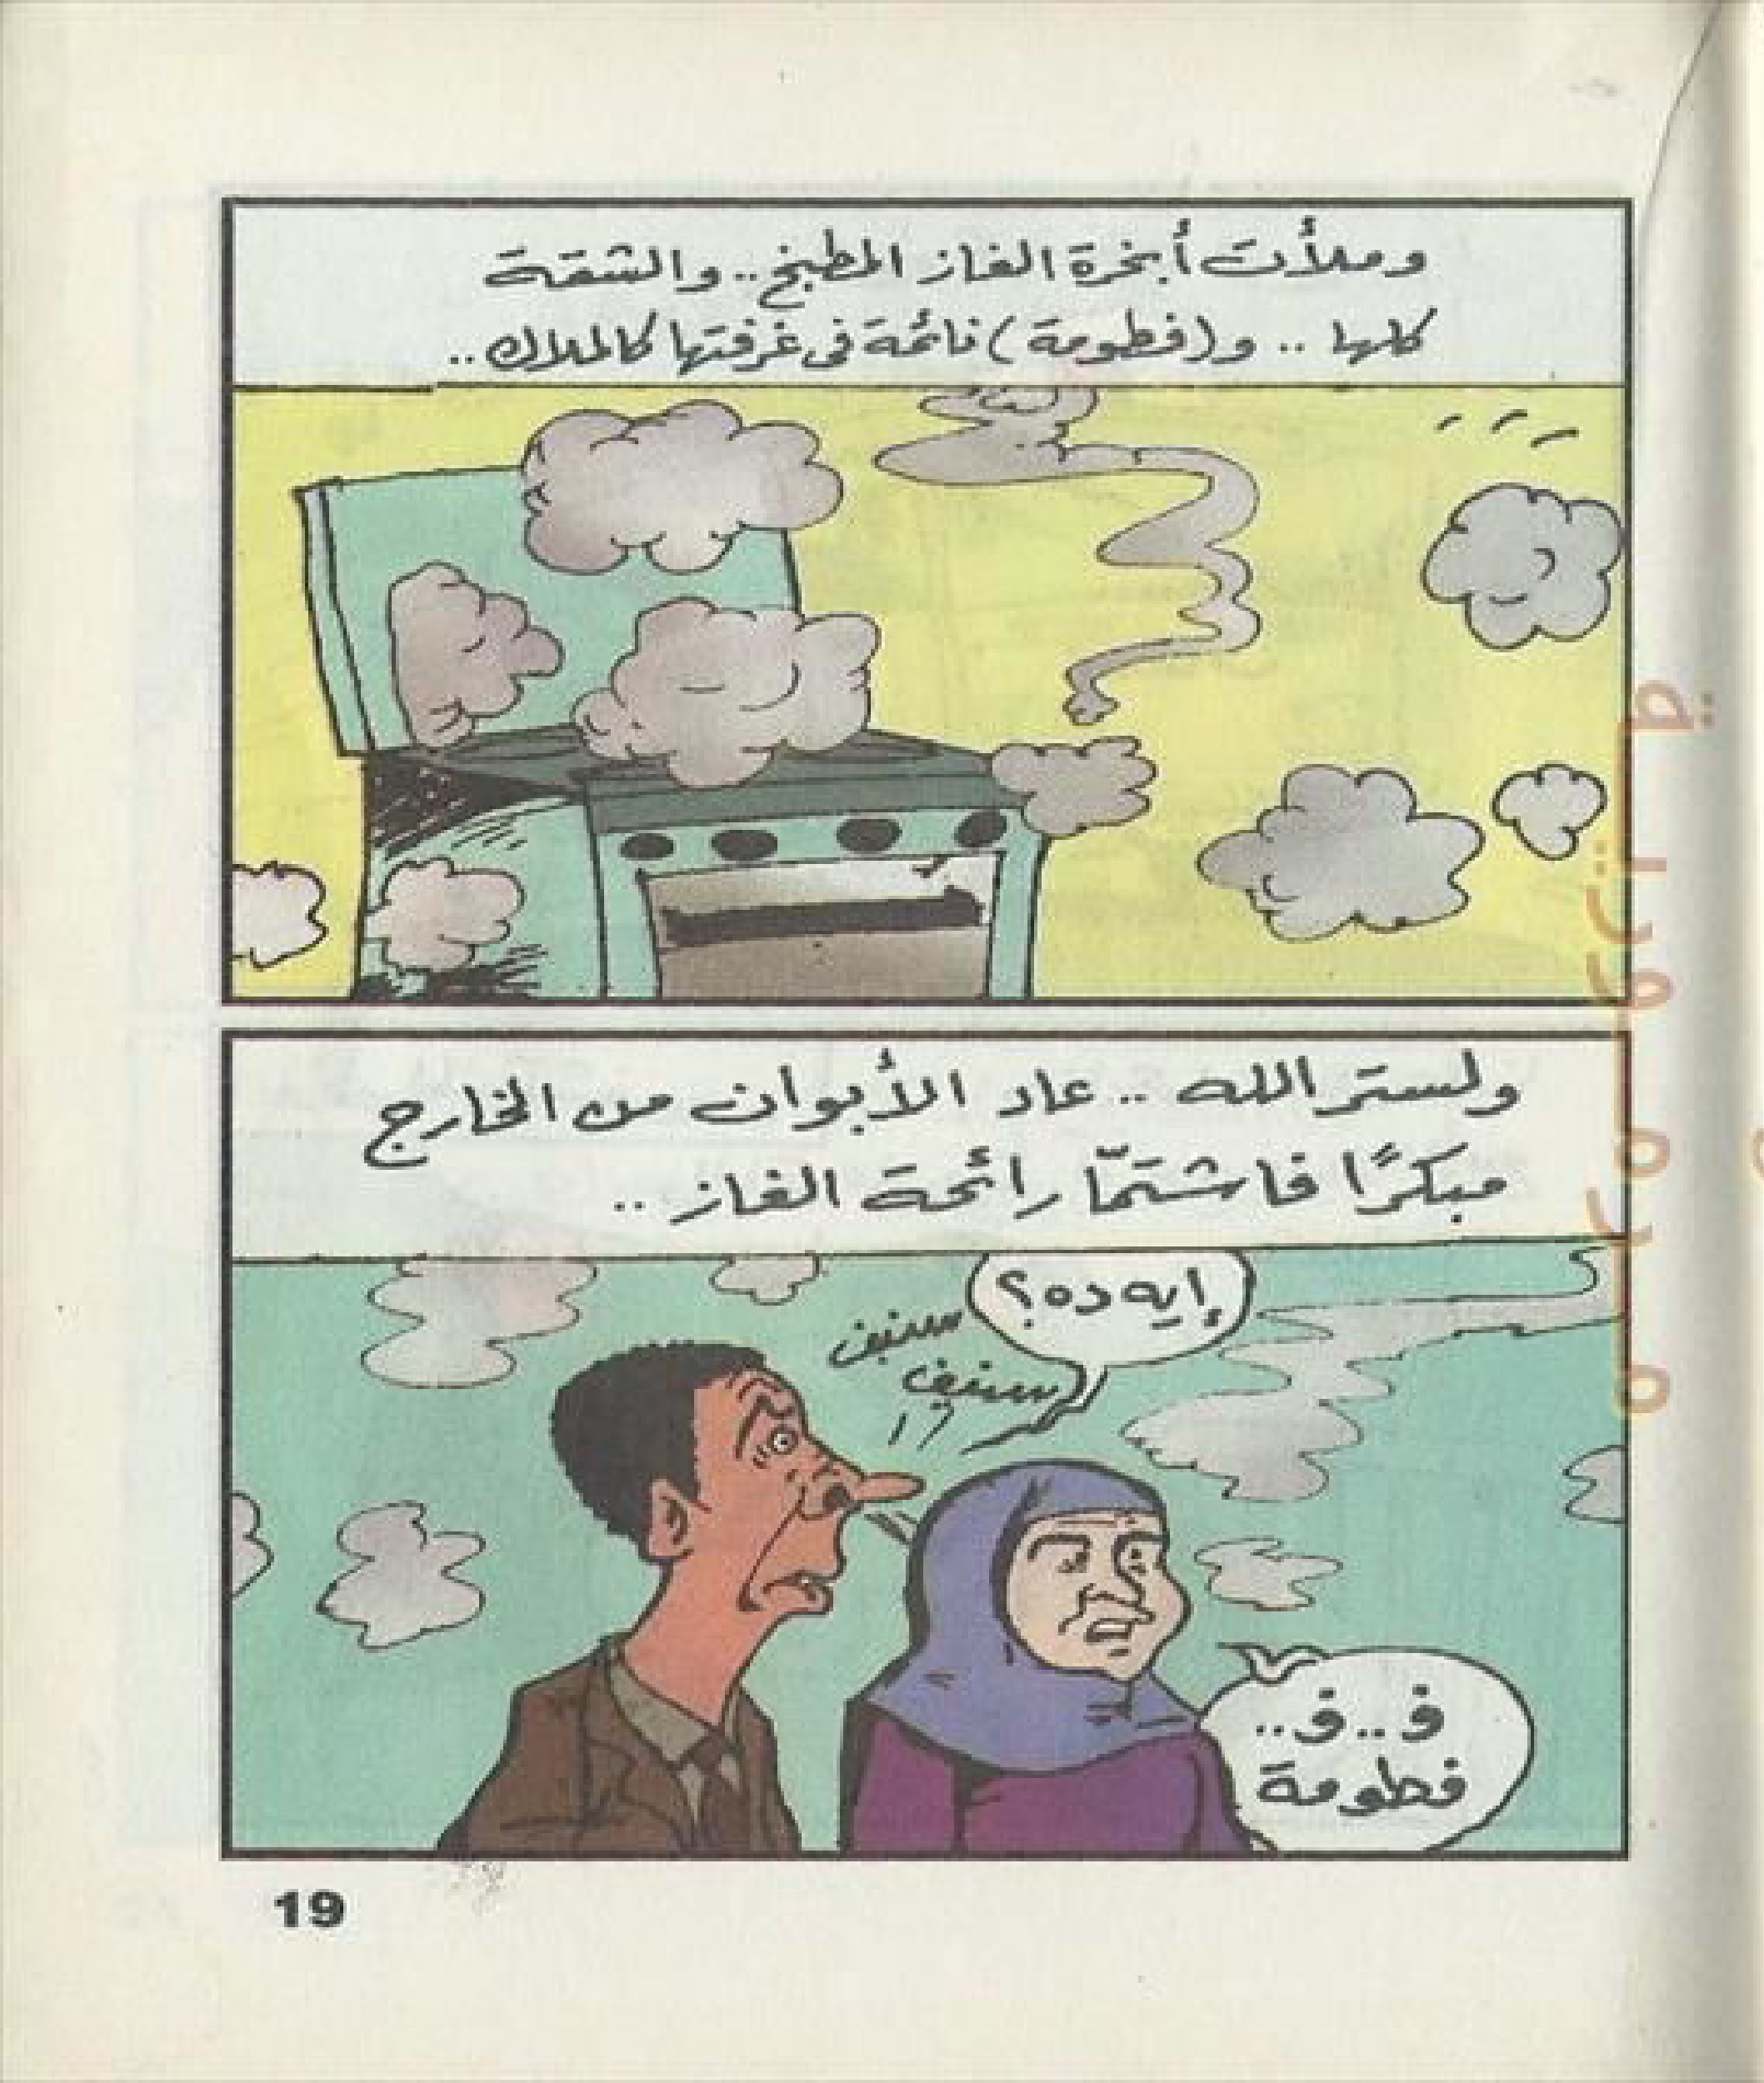 وملأت أبخرة الغاز المطبخ.. والشقة
كلها .. و(فطومة) نائمة فى غرفتها كالملاك..
ولستر الله .. عاد الأبوان من الخارج
مبكرًا فاشتمّا رائحة الغاز ..
إيه ده؟
سنيف
سنيف
ف..ف..
فطومة
19